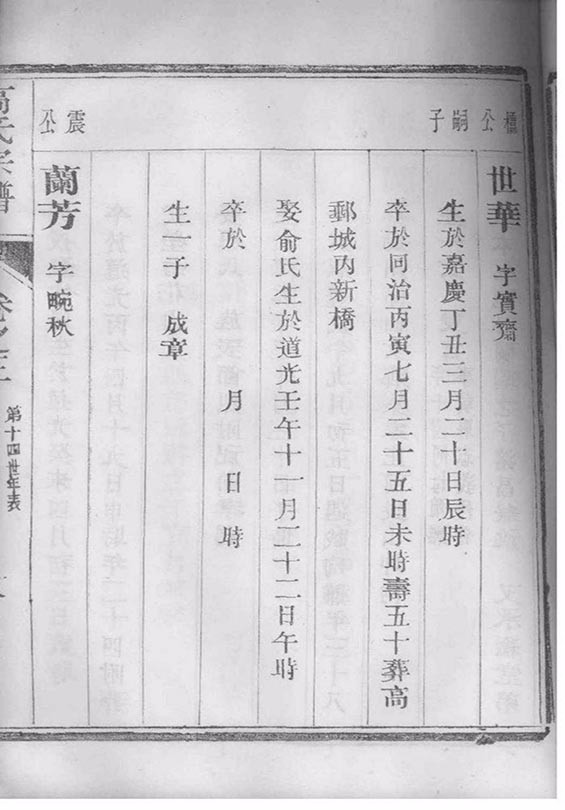 公嗣子
世華 字實齋
生於嘉慶丁丑三月二十日辰時
卒於同治丙寅七月二十五日未時壽五十葬高
郵城內新橋
娶俞氏生於道光壬午十一月二十二日午時
卒於 月 日 時
生一子 成章
震公
蘭芳 字畹秋
高氏宗譜
第十四世年表